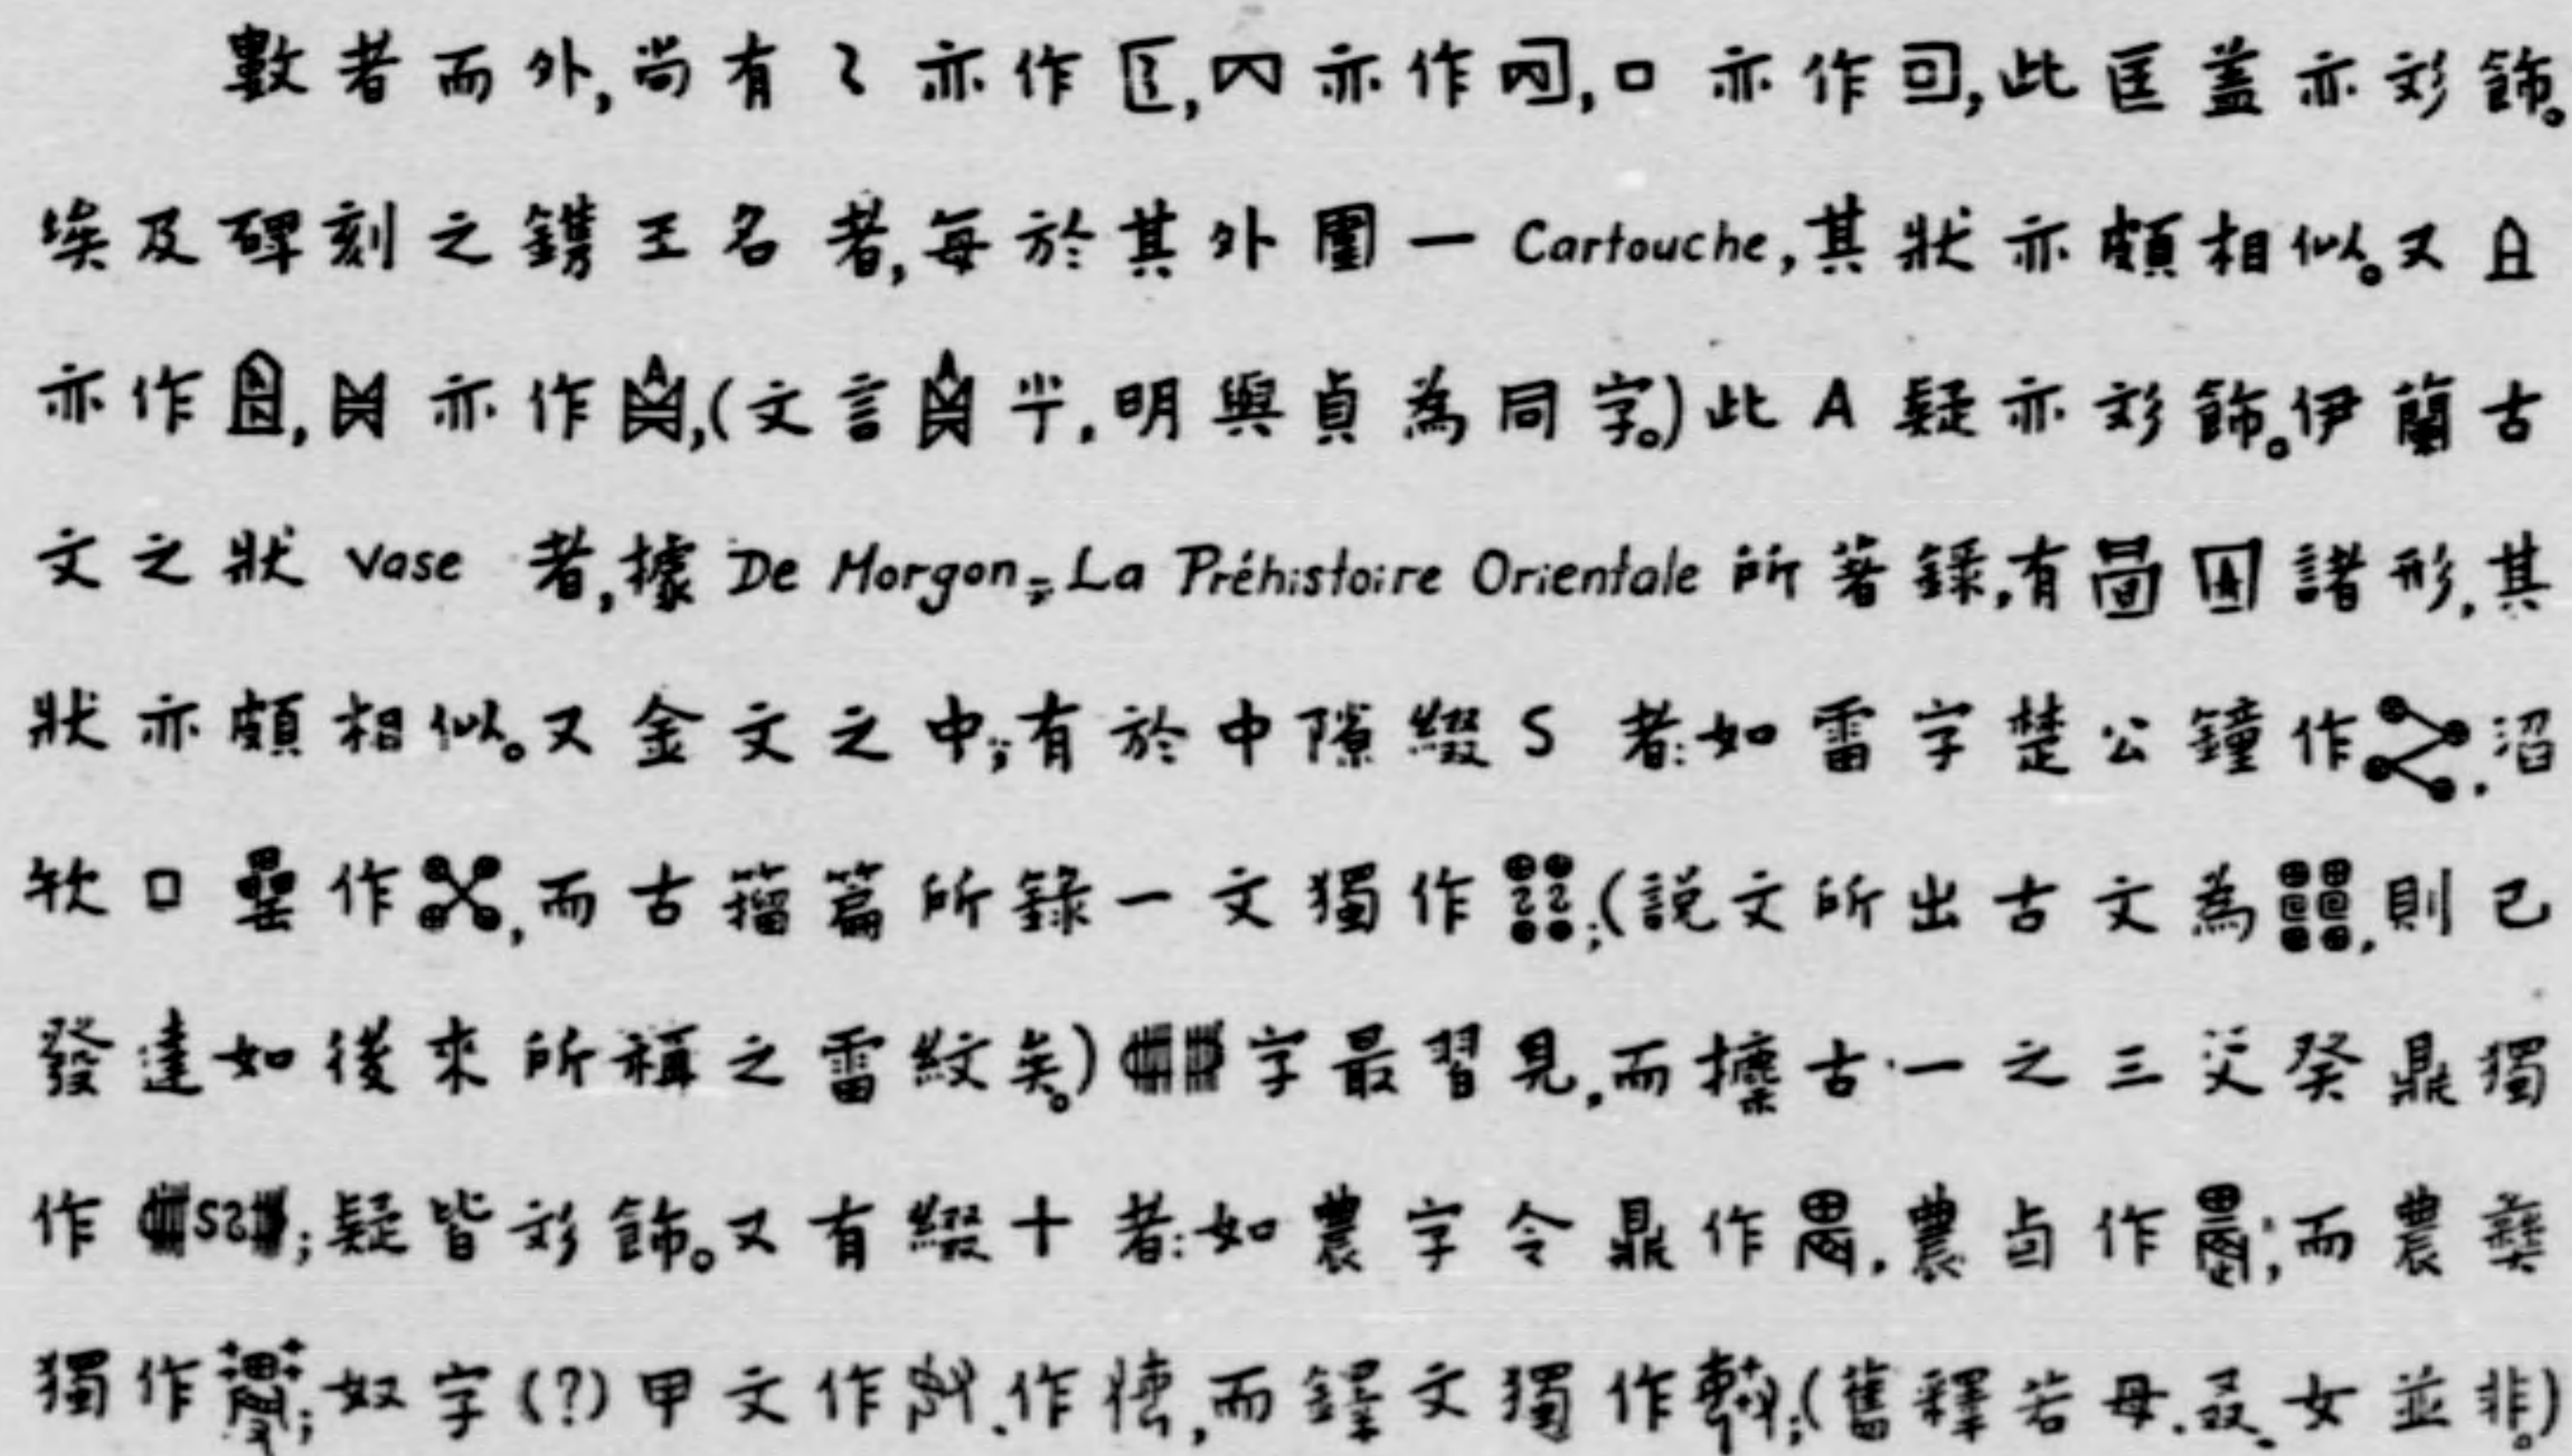 數者而外,尚有亦作,亦作,口亦作回,此匡蓋亦彣飾。
埃及碑刻之鐫王名者,每於其外圍一Cartouche,其狀亦頗相似。又且
亦作,亦作,(文言,明與貞為同字。)此A疑亦彣飾。伊蘭古
文之狀Vase者,據De Morgan: La Préhistoire Orientale所著錄,有諸形,其
狀亦頗相似。又金文之中,有於中隙綴S者:如雷字楚公鐘作,
口罍作,而古籀篇所錄一文獨作;(說文所出古文為,則已
發達如後來所稱之雷紋矣。)字最習見,而攈古一之三父癸鼎獨
作;疑皆彣飾。又有綴十者:如農字令鼎作,農卣作;而農彝
獨作;奴字(?)甲文作,作,而鐸文獨作;(舊釋若母、女並非。)